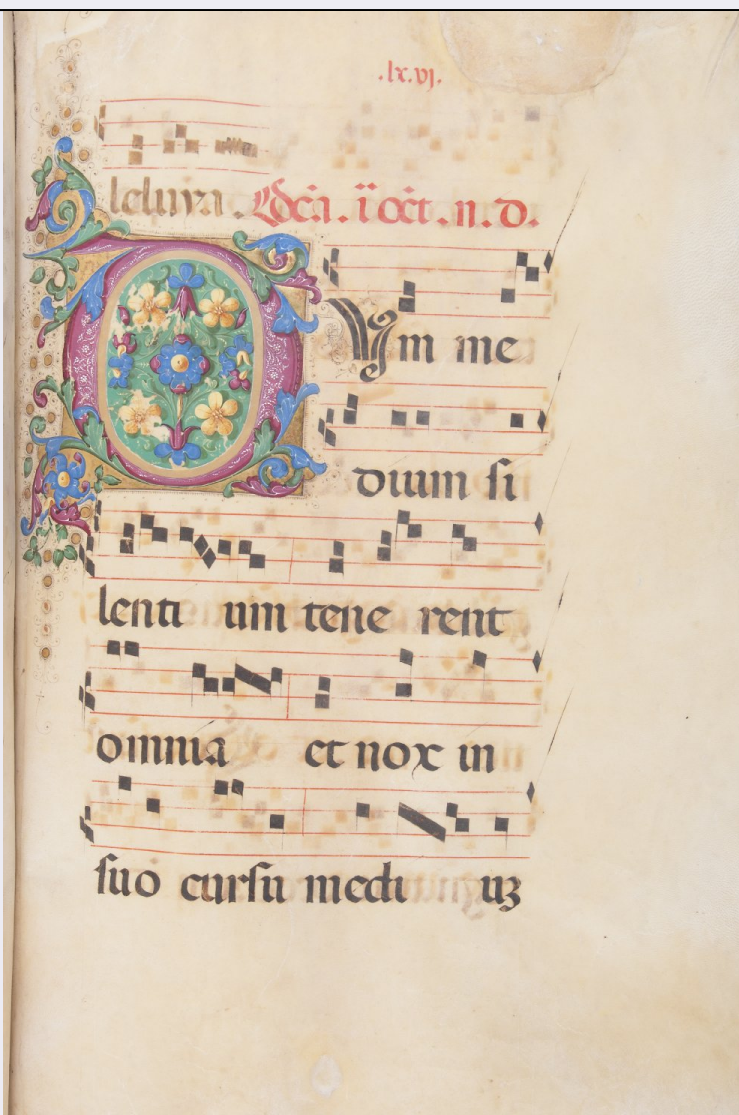 .lx.vj.
leluya. Dn̄ca. i oct. n. D.
Dum me
dium si
lenti um tene rent
omnia et nox in
suo cursu medi uz